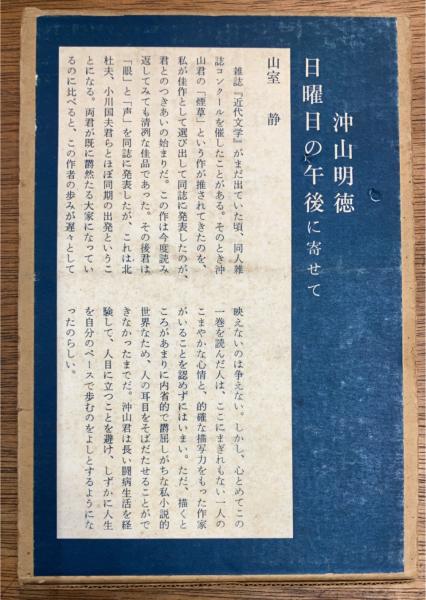 沖山明徳
日曜日の午後に寄せて
山室　静
雑誌『近代文学』がまだ出ていた頃、同人雑
誌コンクールを催したことがある。そのとき沖
山君の「煙草」という作が推されてきたのを、
私が佳作として選び出して同誌に発表したのが、
君とのつきあいの始まりだ。この作は今度読み
返してみても清冽な佳品であった。その後君は
「眼」と「声」を同誌に発表したが、これは北
杜夫、小川国夫君らとほぼ同期の出発というこ
とになる。両君が既に欝然たる大家になってい
るのに比べると、この作者の歩みが遅々として
映えないのは争えない。しかし、心とめてこの
一巻を読んだ人は、ここにまぎれもない一人の
こまやかな心情と、的確な描写力をもった作家
がいることを認めずにはいまい。ただ、描くと
ころがあまりに内省的で欝屈しがちな私小説的
世界なため、人の耳目をそばだたせることがで
きなかったまでだ。沖山君は長い闘病生活を経
験して、人目に立つことを避け、しずかに人生
を自分のペースで歩むのをよしとするようにな
ったのらしい。